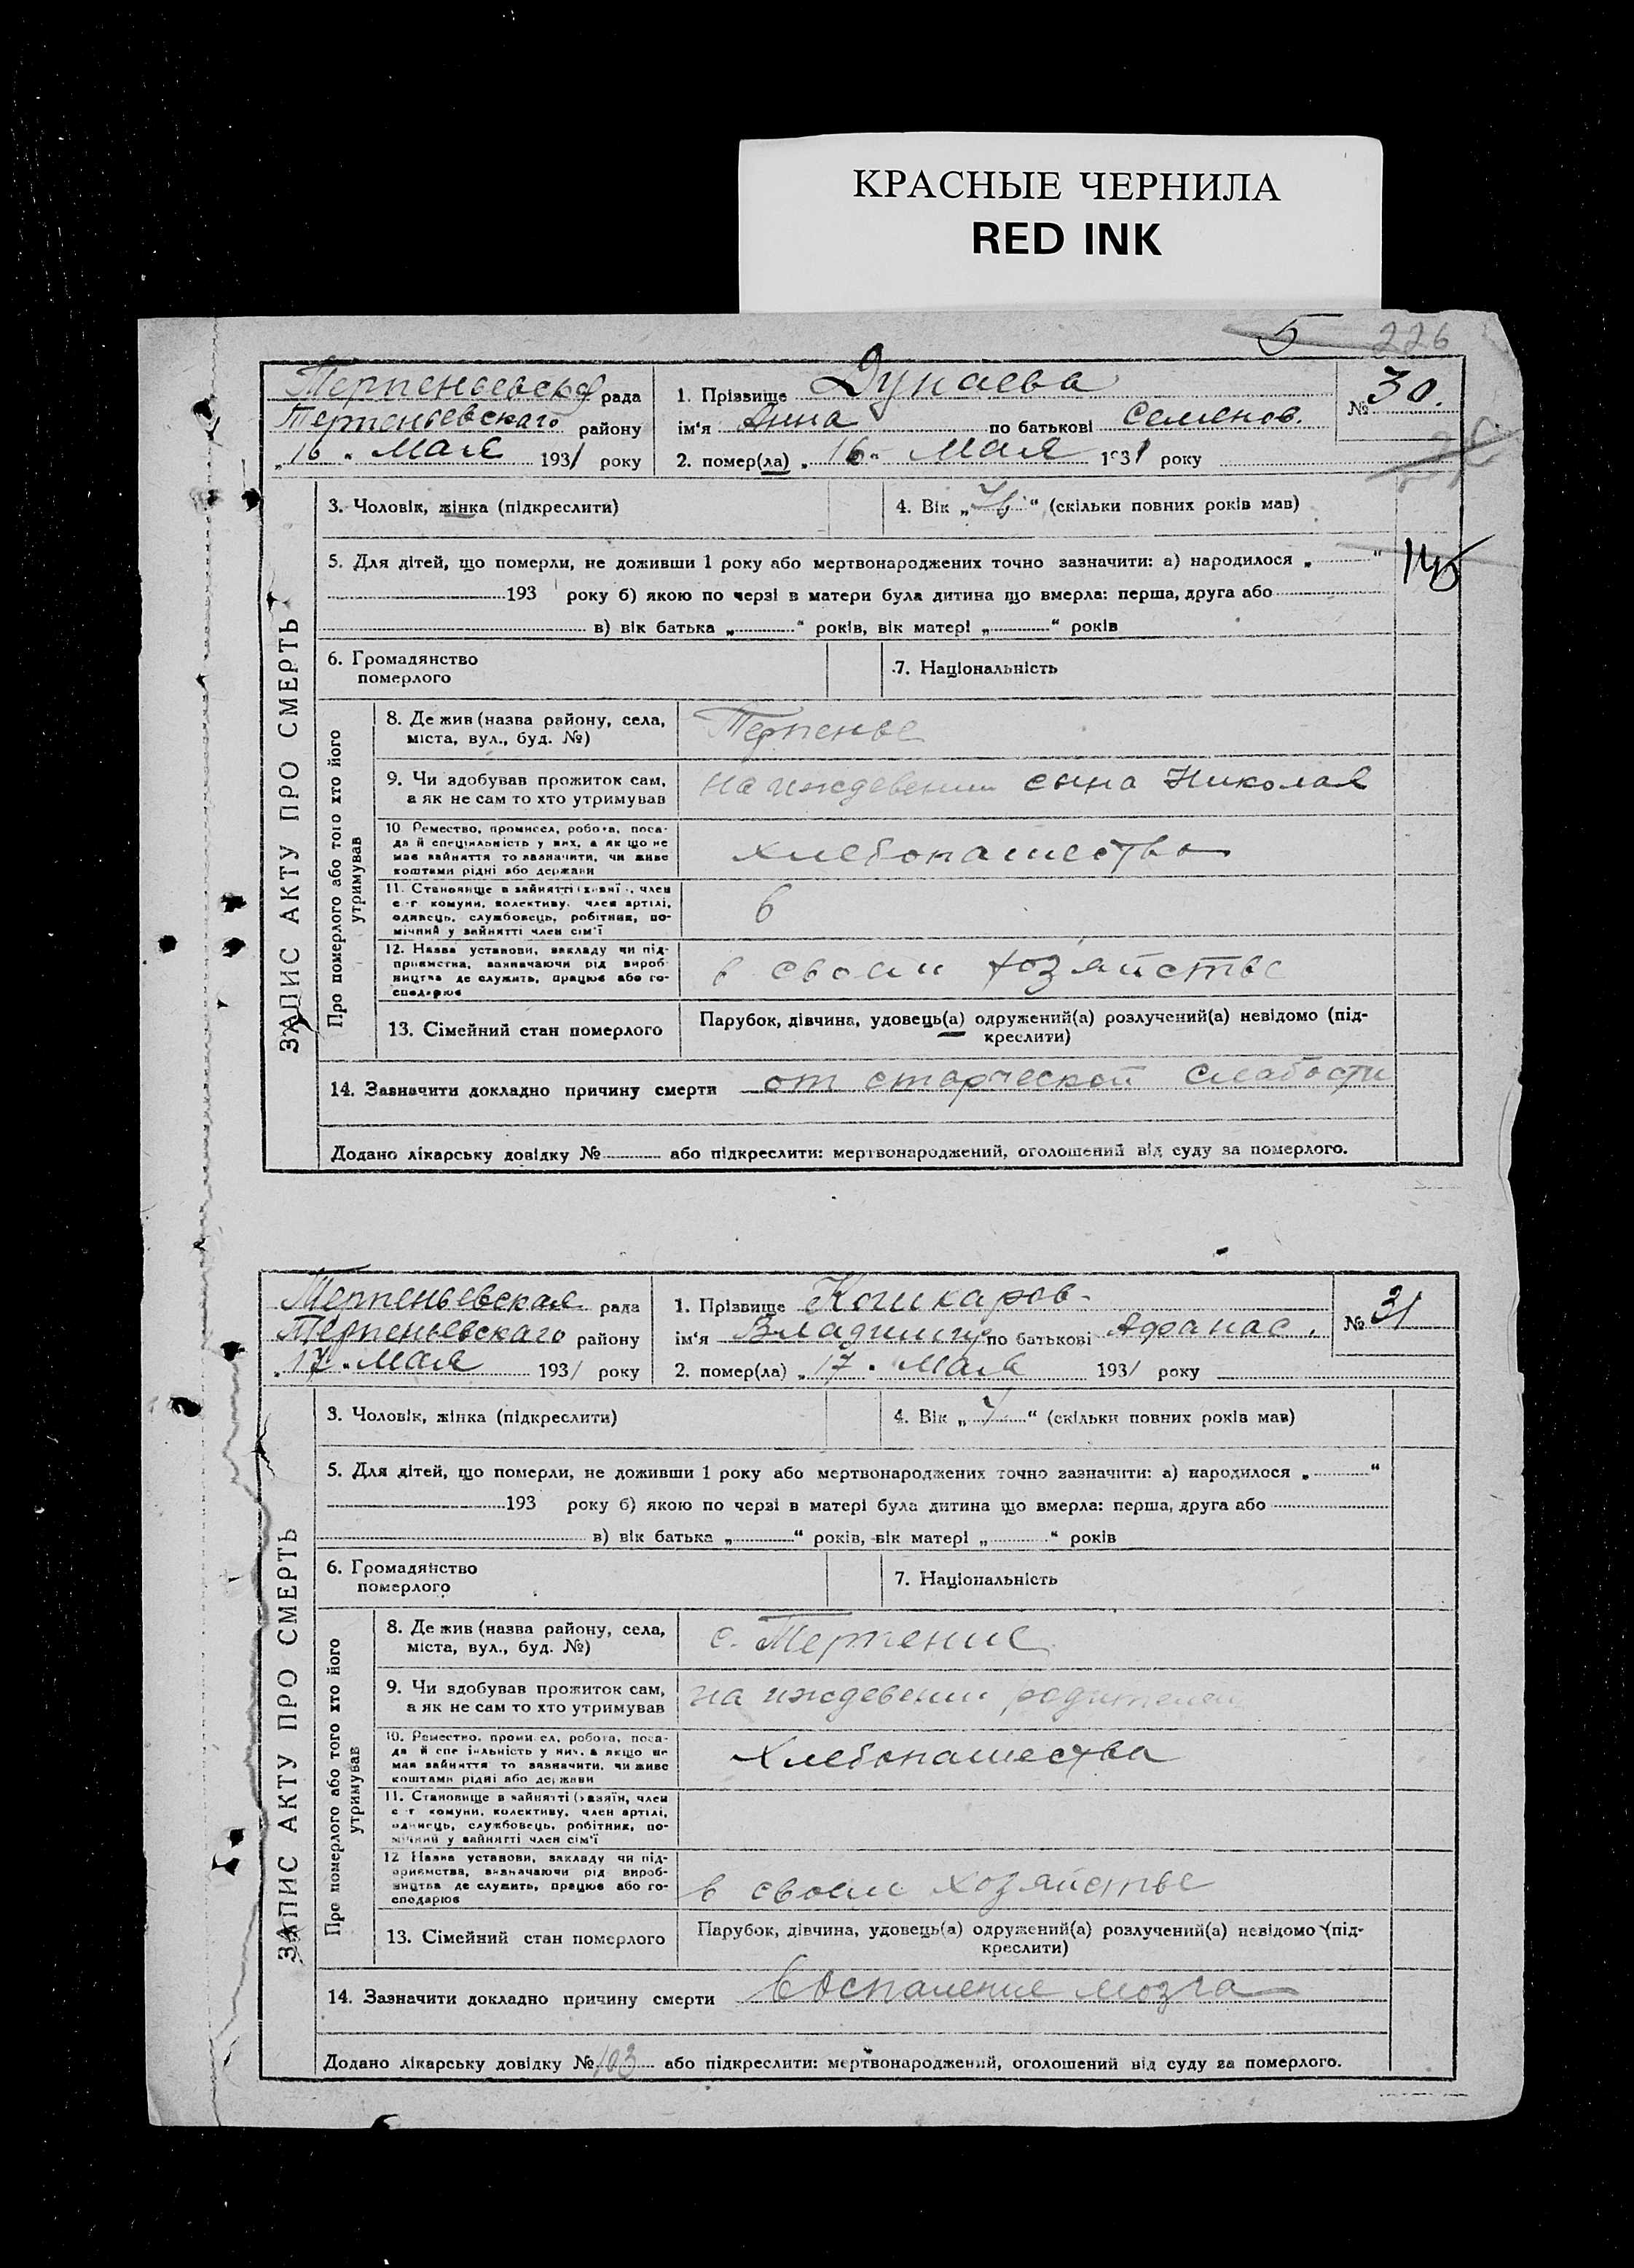 КРАСНЫЕ ЧЕРНИЛА
RED INK
5 226
Терпеньевская рада
Терпеньевскаго району
„16“ Мая 1931 року
1. Прізвище Дунаева
ім'я Анна по батькові Семенов.
2. помер(ла) „16“ Мая 1931 року
№ 30.
ЗАПИС АКТУ ПРО СМЕРТЬ
3. Чоловік, жінка (підкреслити)
4. Вік „76“ (скільки повних років мав)
5. Для дітей, що померли, не доживши 1 року або мертвонароджених точно зазначити: а) народилося „ “
193 року б) якою по черзі в матери була дитина що вмерла: перша, друга або
в) вік батька „ “ років, вік матері „ “ років
6. Громадянство
померлого
7. Національність
Про померлого або того хто його
утримував
8. Де жив (назва району, села,
міста, вул., буд. №)
Терпенье
9. Чи здобував прожиток сам,
а як не сам то хто утримував
на иждевении сына Николая
10 Ремество, промисел, робота, поса-
да й спеціяльність у них, а як що не
має зайняття то зазначити, чи живе
коштами рідні або держави
хлебопашество
11. Становище в зайнятті (хазяїн, член
с-г комуни, колективу, член артілі,
одинець, службовець, робітник, по-
мічний у зайнятті член сім'ї
в
12. Назва установи, закладу чи під-
приємства, зазначаючи рід вироб-
ництва де служить, працює або го-
сподарює
в своем хозяйстве
13. Сімейний стан померлого
Парубок, дівчина, удовець(а) одружений(а) розлучений(а) невідомо (під-
креслити)
14. Зазначити докладно причину смерти от старческой слабости
Додано лікарську довідку № або підкреслити: мертвонароджений, оголошений від суду за померлого.
Терпеньевская рада
Терпеньевскаго району
„17“ Мая 1931 року
1. Прізвище Кошкаров
ім'я Владимир по батькові Афанас.
2. помер(ла) „17“ Мая 1931 року
№ 31
ЗАПИС АКТУ ПРО СМЕРТЬ
3. Чоловік, жінка (підкреслити)
4. Вік „7“ (скільки повних років мав)
5. Для дітей, що померли, не доживши 1 року або мертвонароджених точно зазначити: а) народилося „ “
193 року б) якою по черзі в матері була дитина що вмерла: перша, друга або
в) вік батька „ “ років, вік матері „ “ років
6. Громадянство
померлого
7. Національність
Про померлого або того хто його
утримував
8. Де жив (назва району, села,
міста, вул., буд. №)
с. Терпение
9. Чи здобував прожиток сам,
а як не сам то хто утримував
на иждевении родителей
10. Ремество, промисел, робота, поса-
да й спеціяльність у них, а якщо не
має зайняття то зазначити, чи живе
коштами рідні або держави
Хлебопашества
11. Становище в зайнятті (хазяїн, член
с-г комуни, колективу, член артілі,
одинець, службовець, робітник, по-
мічний у зайнятті член сім'ї
12 Назва установи, закладу чи під-
приємства, зазначаючи рід вироб-
ництва де служить, працює або го-
сподарює
в своем хозяйстве
13. Сімейний стан померлого
Парубок, дівчина, удовець(а) одружений(а) розлучений(а) невідомо (під-
креслити)
14. Зазначити докладно причину смерти Воспаление мозга
Додано лікарську довідку № 103 або підкреслити: мертвонароджений, оголошений від суду за померлого.